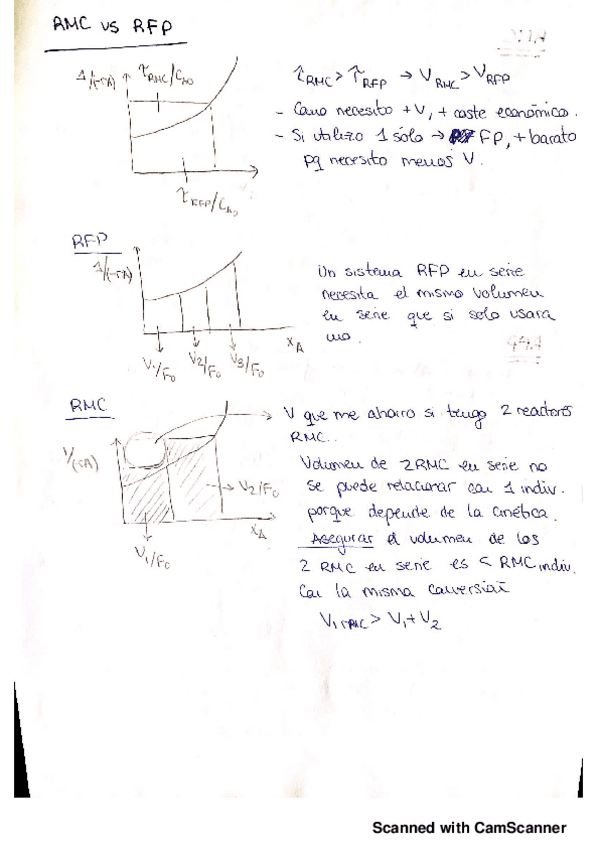 RMC vs RFP
1/(-rA)
τRMC/CA0
τRFP/CA0
τRMC > τRFP → VRMC > VRFP
- Como necesito + V, + coste económico.
- Si utilizo 1 sólo → FP, + barato
pq necesito menos V.
RFP
1/(-rA)
V1/F0 V2/F0 V3/F0
XA
Un sistema RFP en serie
necesita el mismo volumen
en serie que si solo usara
uno.
RMC
1/(-rA)
V2/F0
XA
V1/F0
V que me ahorro si tengo 2 reactores
RMC.
Volumen de 2RMC en serie no
se puede relacionar con 1 indiv.
porque depende de la cinética.
Asegurar el volumen de los
2 RMC en serie es < RMC indiv.
Con la misma conversión
V1 RMC > V1 + V2
Scanned with CamScanner